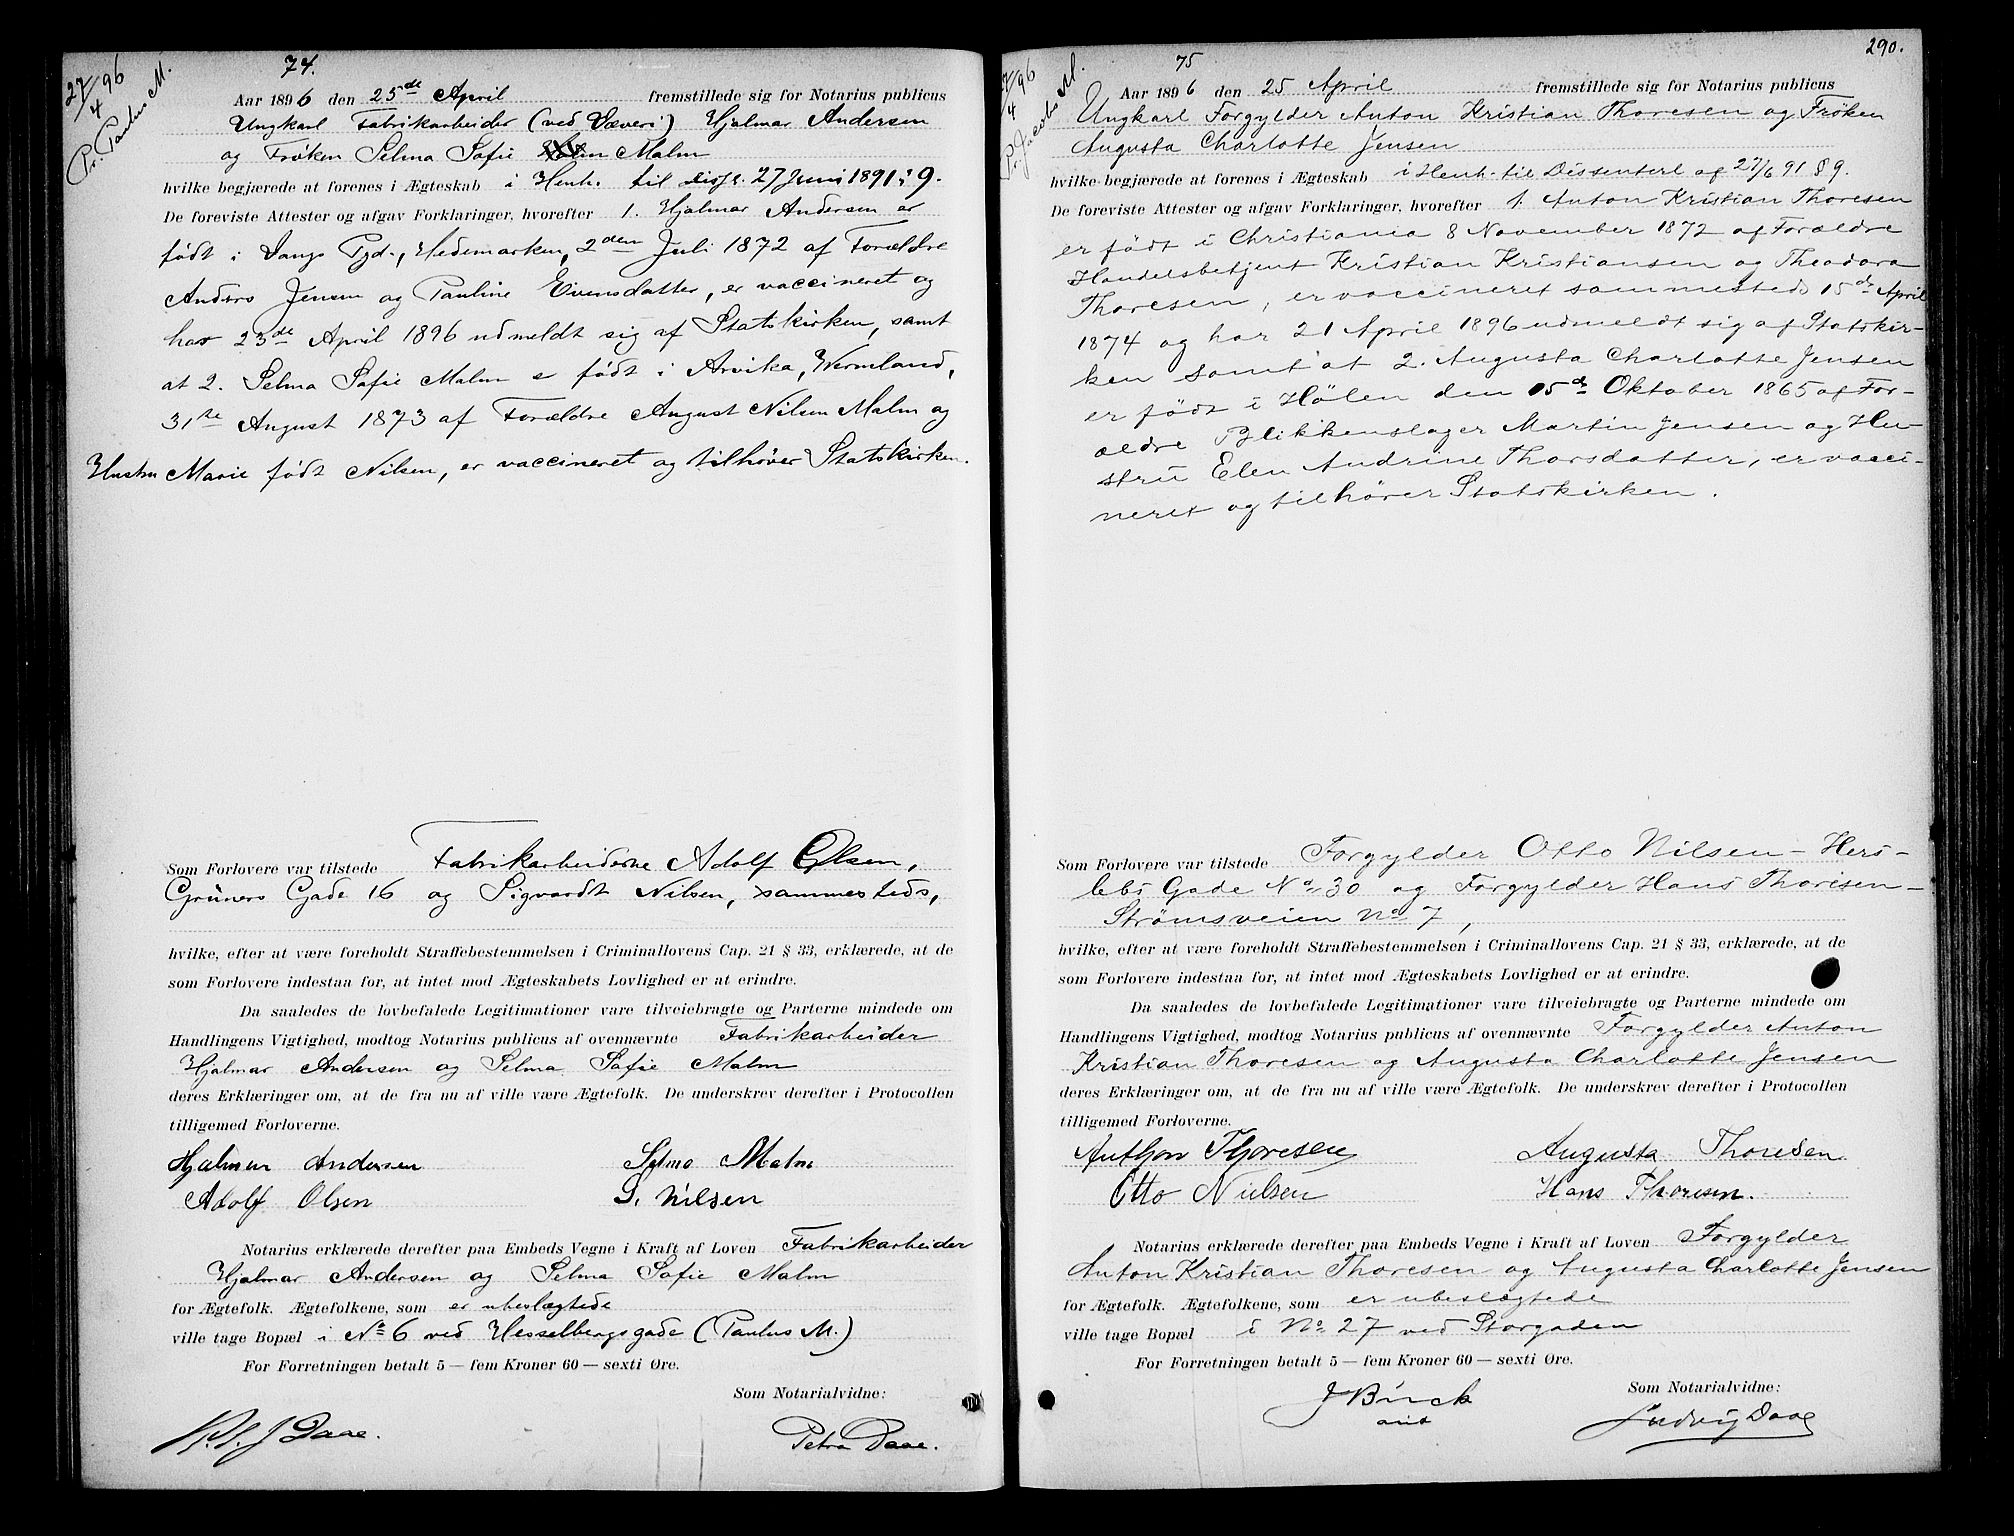 27/4 96
Pr. Paulus M.
74.
Aar 1896 den 25de April fremstillede sig for Notarius publicus
Ungkarl Fabrikarbeider (ved Væveri) Hjalmar Andersen
og Frøken Selma Sofie Malm
hvilke begjærede at forenes i Ægteskab i Henh. til Disfl. 27 Juni 1891 § 9.
De foreviste Attester og afgav Forklaringer, hvorefter 1. Hjalmar Andersen er
født i Vangs Pgd., Hedemarken, 2den Juli 1872 af Forældre
Anders Jensen og Pauline Evensdatter, er vaccineret og
har 23de April 1896 udmeldt sig af Statskirken, samt
at 2. Selma Sofie Malm er født i Arvika, Wermland,
31te August 1873 af Forældre August Nilsen Malm og
Hustru Marie født Nilsen, er vaccineret og tilhører Statskirken.
Som Forlovere var tilstede Fabrikarbeiderne Adolf Olsen,
Grüners Gade 16 og Sigvardt Nilsen, sammesteds,
hvilke, efter at være foreholdt Straffebestemmelsen i Criminallovens Cap. 21 § 33, erklærede, at de
som Forlovere indestaa for, at intet mod Ægteskabets Lovlighed er at erindre.
Da saaledes de lovbefalede Legitimationer vare tilveiebragte og Parterne mindede om
Handlingens Vigtighed, modtog Notarius publicus af ovennævnte Fabrikarbeider
Hjalmar Andersen og Selma Sofie Malm
deres Erklæringer om, at de fra nu af ville være Ægtefolk. De underskrev derefter i Protocollen
tilligemed Forloverne.
Hjalmar Andersen Selma Malm
Adolf Olsen S. Nilsen
Notarius erklærede derefter paa Embeds Vegne i Kraft af Loven Fabrikarbeider
Hjalmar Andersen og Selma Sofie Malm
for Ægtefolk. Ægtefolkene, som er ubeslægtede
ville tage Bopæl i No 6 ved Hesselbergsgade (Paulus M.)
For Forretningen betalt 5 — fem Kroner 60 — sexti Øre.
Som Notarialvidne:
Daae. Petra Daae.
290.
27/4 96
Pr. Jacobs M.
75
Aar 1896 den 25 April fremstillede sig for Notarius publicus
Ungkarl Forgylder Anton Kristian Thoresen og Frøken
Augusta Charlotte Jensen
hvilke begjærede at forenes i Ægteskab i Henh. til Dissenterl af 27/6 91 § 9.
De foreviste Attester og afgav Forklaringer, hvorefter 1. Anton Kristian Thoresen
er født i Christiania 8 November 1872 af Forældre
Handelsbetjent Kristian Kristiansen og Theodora
Thoresen, er vaccineret sammesteds 15de April
1874 og har 21 April 1896 udmeldt sig af Statskir-
ken samt at 2. Augusta Charlotte Jensen
er født i Hølen den 15de Oktober 1865 af For-
ældre Blikkenslager Martin Jensen og Hu-
stru Elen Andrine Thorsdatter, er vacci-
neret og tilhører Statskirken.
Som Forlovere var tilstede Forgylder Otto Nilsen - Hers-
lebs Gade No 30 og Forgylder Hans Thoresen -
Strømsveien No 7,
hvilke, efter at være foreholdt Straffebestemmelsen i Criminallovens Cap. 21 § 33, erklærede, at de
som Forlovere indestaa for, at intet mod Ægteskabets Lovlighed er at erindre.
Da saaledes de lovbefalede Legitimationer vare tilveiebragte og Parterne mindede om
Handlingens Vigtighed, modtog Notarius publicus af ovennævnte Forgylder Anton
Kristian Thoresen og Augusta Charlotte Jensen
deres Erklæringer om, at de fra nu af ville være Ægtefolk. De underskrev derefter i Protocollen
tilligemed Forloverne.
Anthon Thoresen Augusta Thoresen
Otto Nielsen Hans Thoresen.
Notarius erklærede derefter paa Embeds Vegne i Kraft af Loven Forgylder
Anton Kristian Thoresen og Augusta Charlotte Jensen
for Ægtefolk. Ægtefolkene, som er ubeslægtede
ville tage Bopæl i No 27 ved Storgaden
For Forretningen betalt 5 — fem Kroner 60 — sexti Øre.
Som Notarialvidne:
J Birck
Ludvig Daae